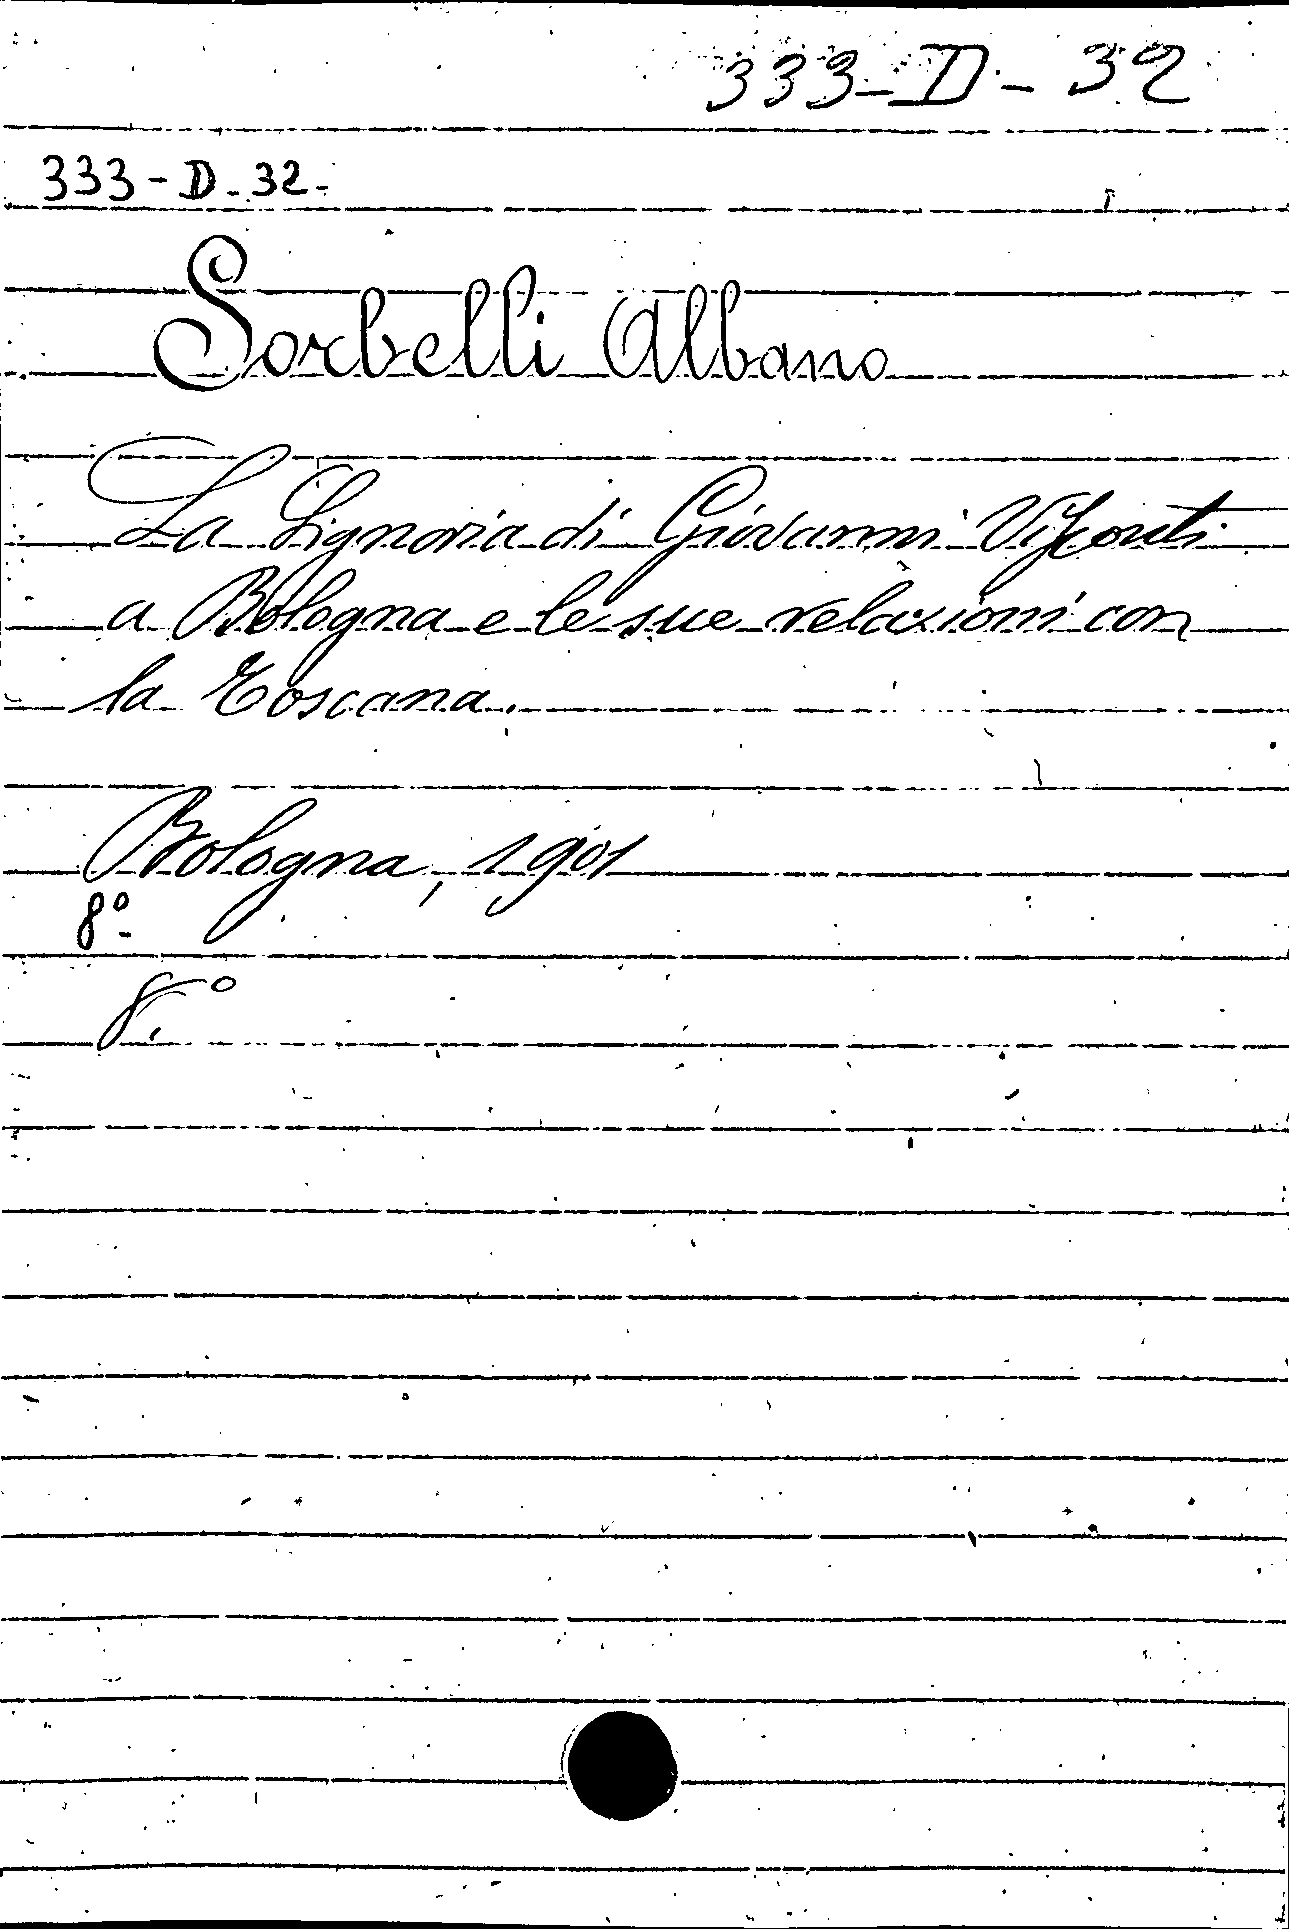 333-D-32
333-D-32-
Sorbelli Albano
La Signoria di Giovanni Visconti
a Bologna e le sue relazioni con
la Toscana.
Bologna, 1901
8º
8.º